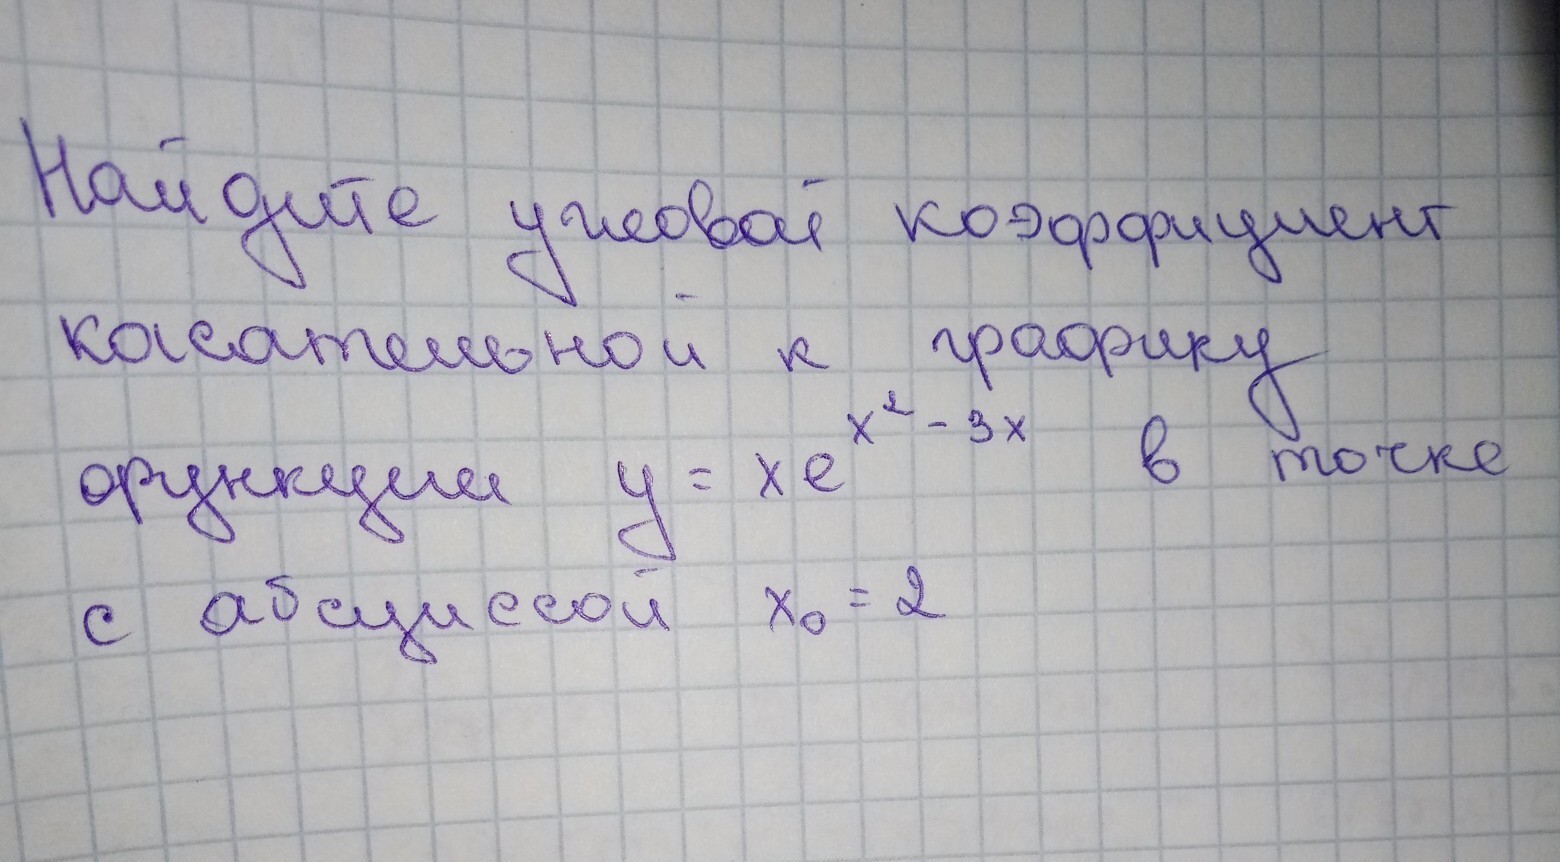 Найдите угловой коэффициент
касательной к графику
функции y = xe^{x^2 - 3x} в точке
с абсциссой x₀ = 2